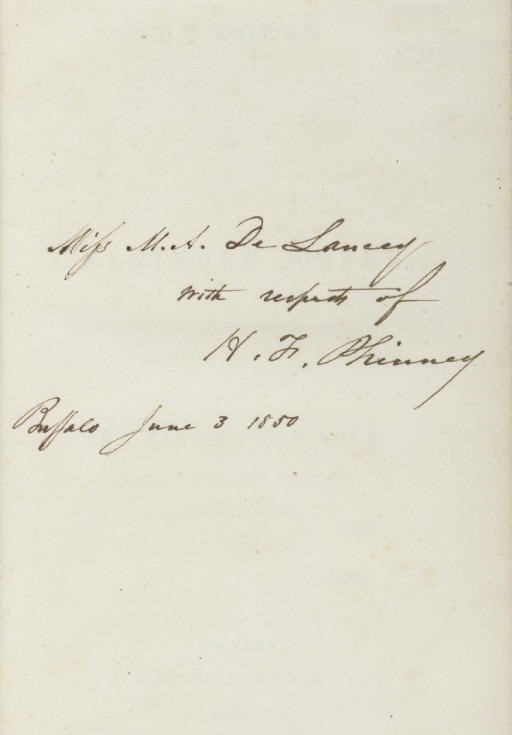 Miss M. A. De Lancey
with respects of
H. F. Phinney
Buffalo June 3 1850